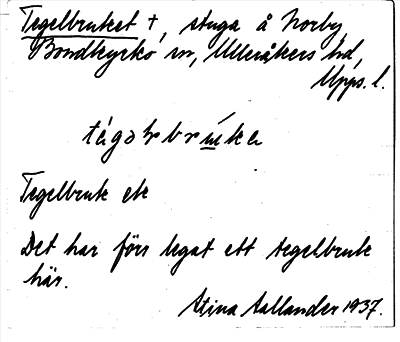 Tegelbruket +, stuga å Norby,
Bondkyrko sn, Ulleråkers hd,
Upps. l.
Tegelbruk etc
Det har förr legat ett tegelbruk
här.
Stina Aallander 1937.